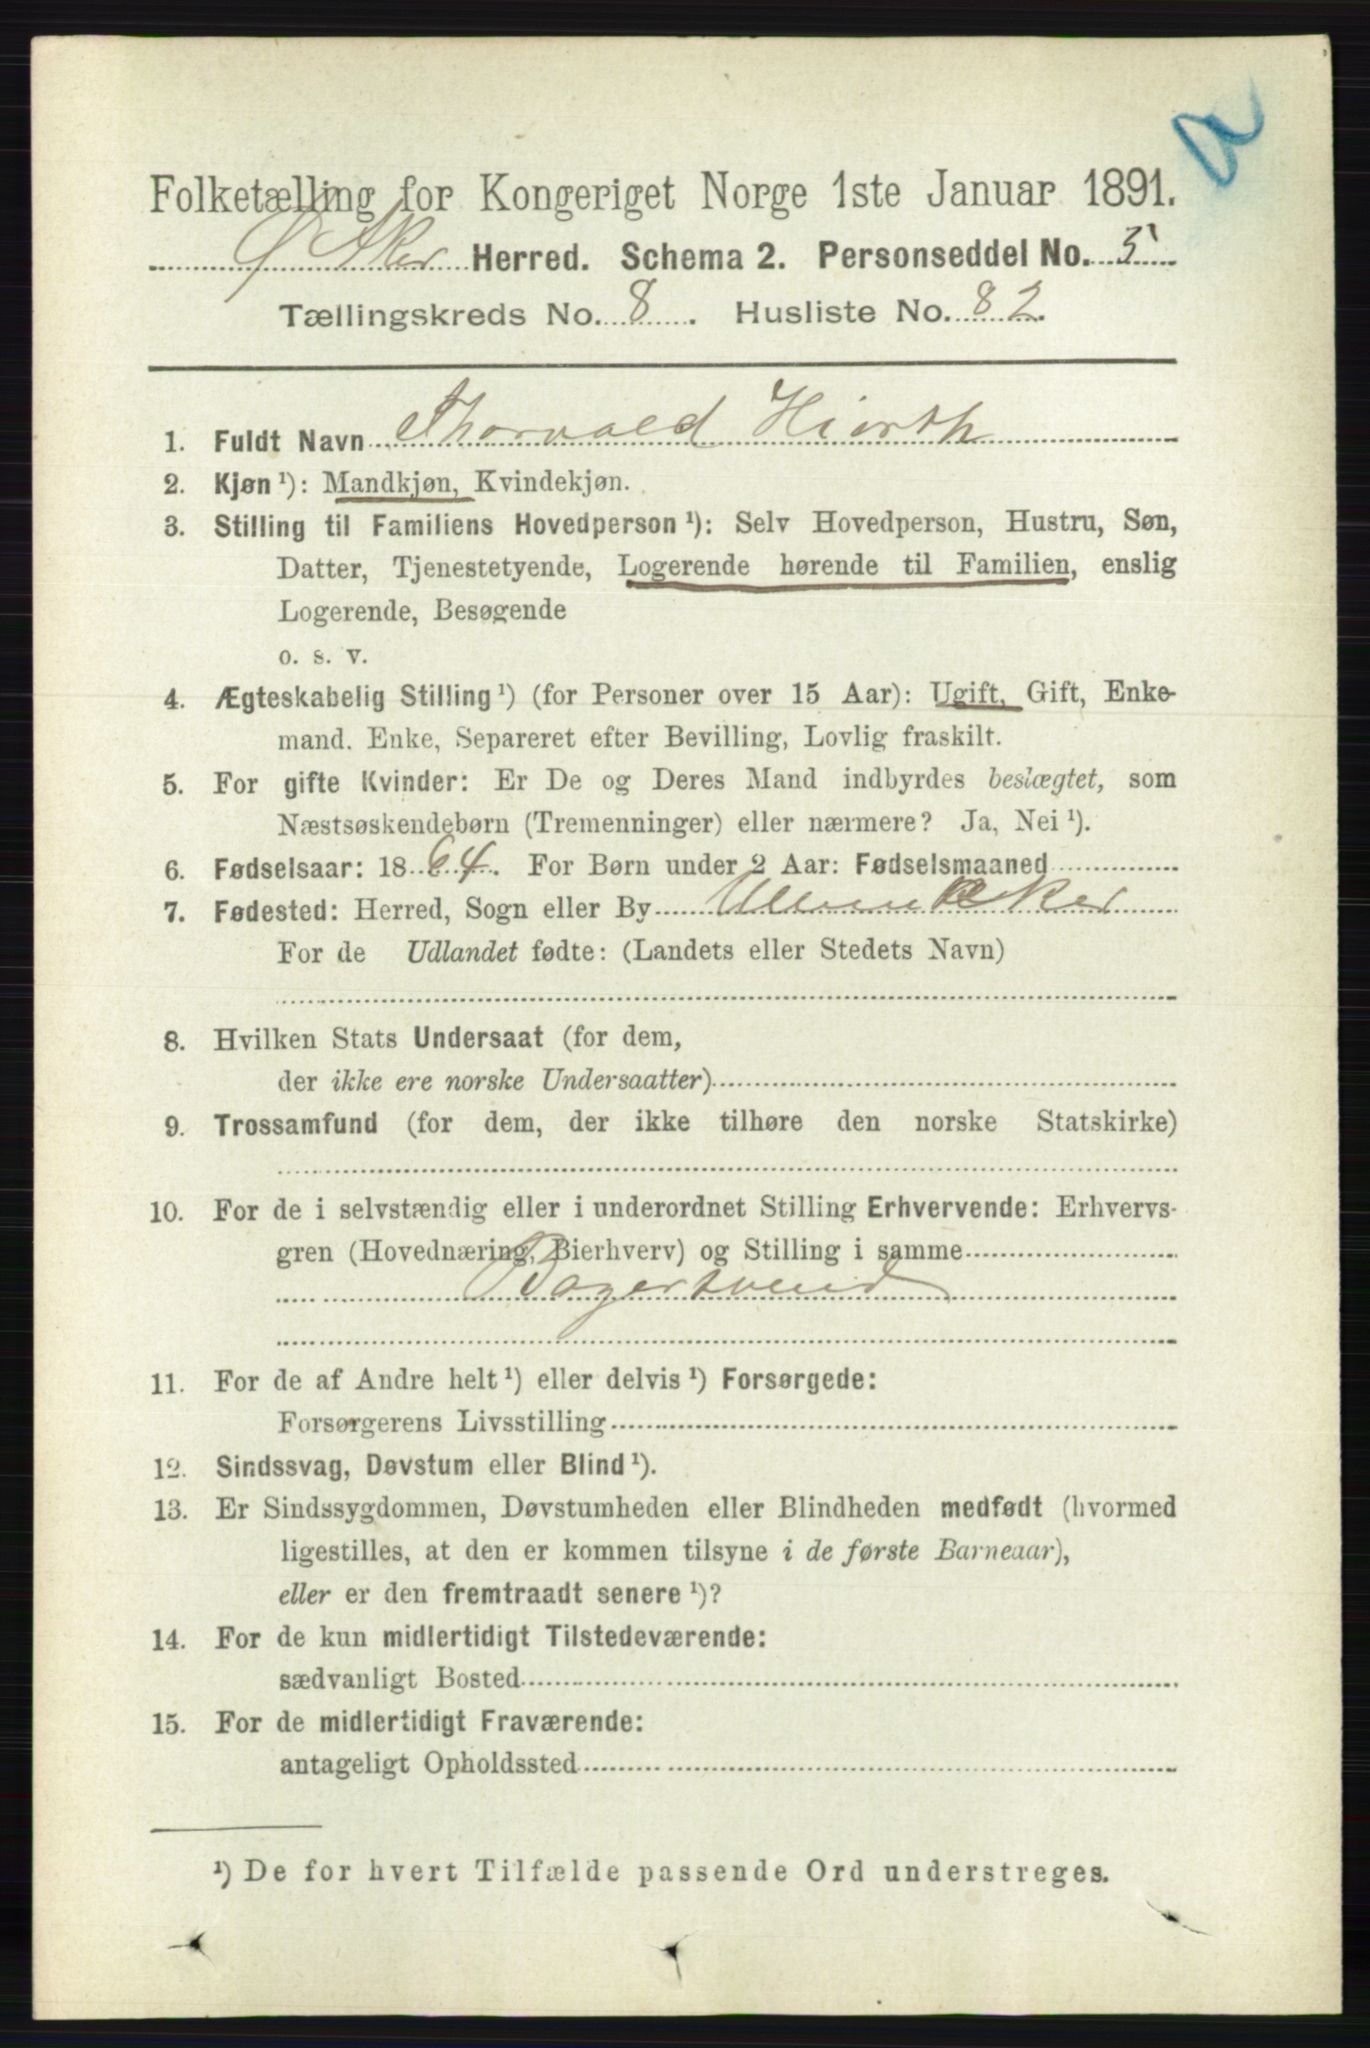 a
Folketælling for Kongeriget Norge 1ste Januar 1891.
Ø Aker Herred. Schema 2. Personseddel No. 5
Tællingskreds No. 8. Husliste No. 82.
1. Fuldt Navn Thorvald Hiorth
2. Kjøn ¹): Mandkjøn, Kvindekjøn.
3. Stilling til Familiens Hovedperson ¹): Selv Hovedperson, Hustru, Søn,
Datter, Tjenestetyende, Logerende hørende til Familien, enslig
Logerende, Besøgende
o. s. v.
4. Ægteskabelig Stilling ¹) (for Personer over 15 Aar): Ugift, Gift, Enke-
mand. Enke, Separeret efter Bevilling, Lovlig fraskilt.
5. For gifte Kvinder: Er De og Deres Mand indbyrdes beslægtet, som
Næstsøskendebørn (Tremenninger) eller nærmere? Ja, Nei ¹).
6. Fødselsaar: 1864. For Børn under 2 Aar: Fødselsmaaned
7. Fødested: Herred, Sogn eller By Ullensaker
For de Udlandet fødte: (Landets eller Stedets Navn)
8. Hvilken Stats Undersaat (for dem,
der ikke ere norske Undersaatter)
9. Trossamfund (for dem, der ikke tilhøre den norske Statskirke)
10. For de i selvstændig eller i underordnet Stilling Erhvervende: Erhvervs-
gren (Hovednæring, Bierhverv) og Stilling i samme
Bagersvend
11. For de af Andre helt ¹) eller delvis ¹) Forsørgede:
Forsørgerens Livsstilling
12. Sindssvag, Døvstum eller Blind ¹).
13. Er Sindssygdommen, Døvstumheden eller Blindheden medfødt (hvormed
ligestilles, at den er kommen tilsyne i de første Barneaar),
eller er den fremtraadt senere ¹)?
14. For de kun midlertidigt Tilstedeværende:
sædvanligt Bosted
15. For de midlertidigt Fraværende:
antageligt Opholdssted
¹) De for hvert Tilfælde passende Ord understreges.